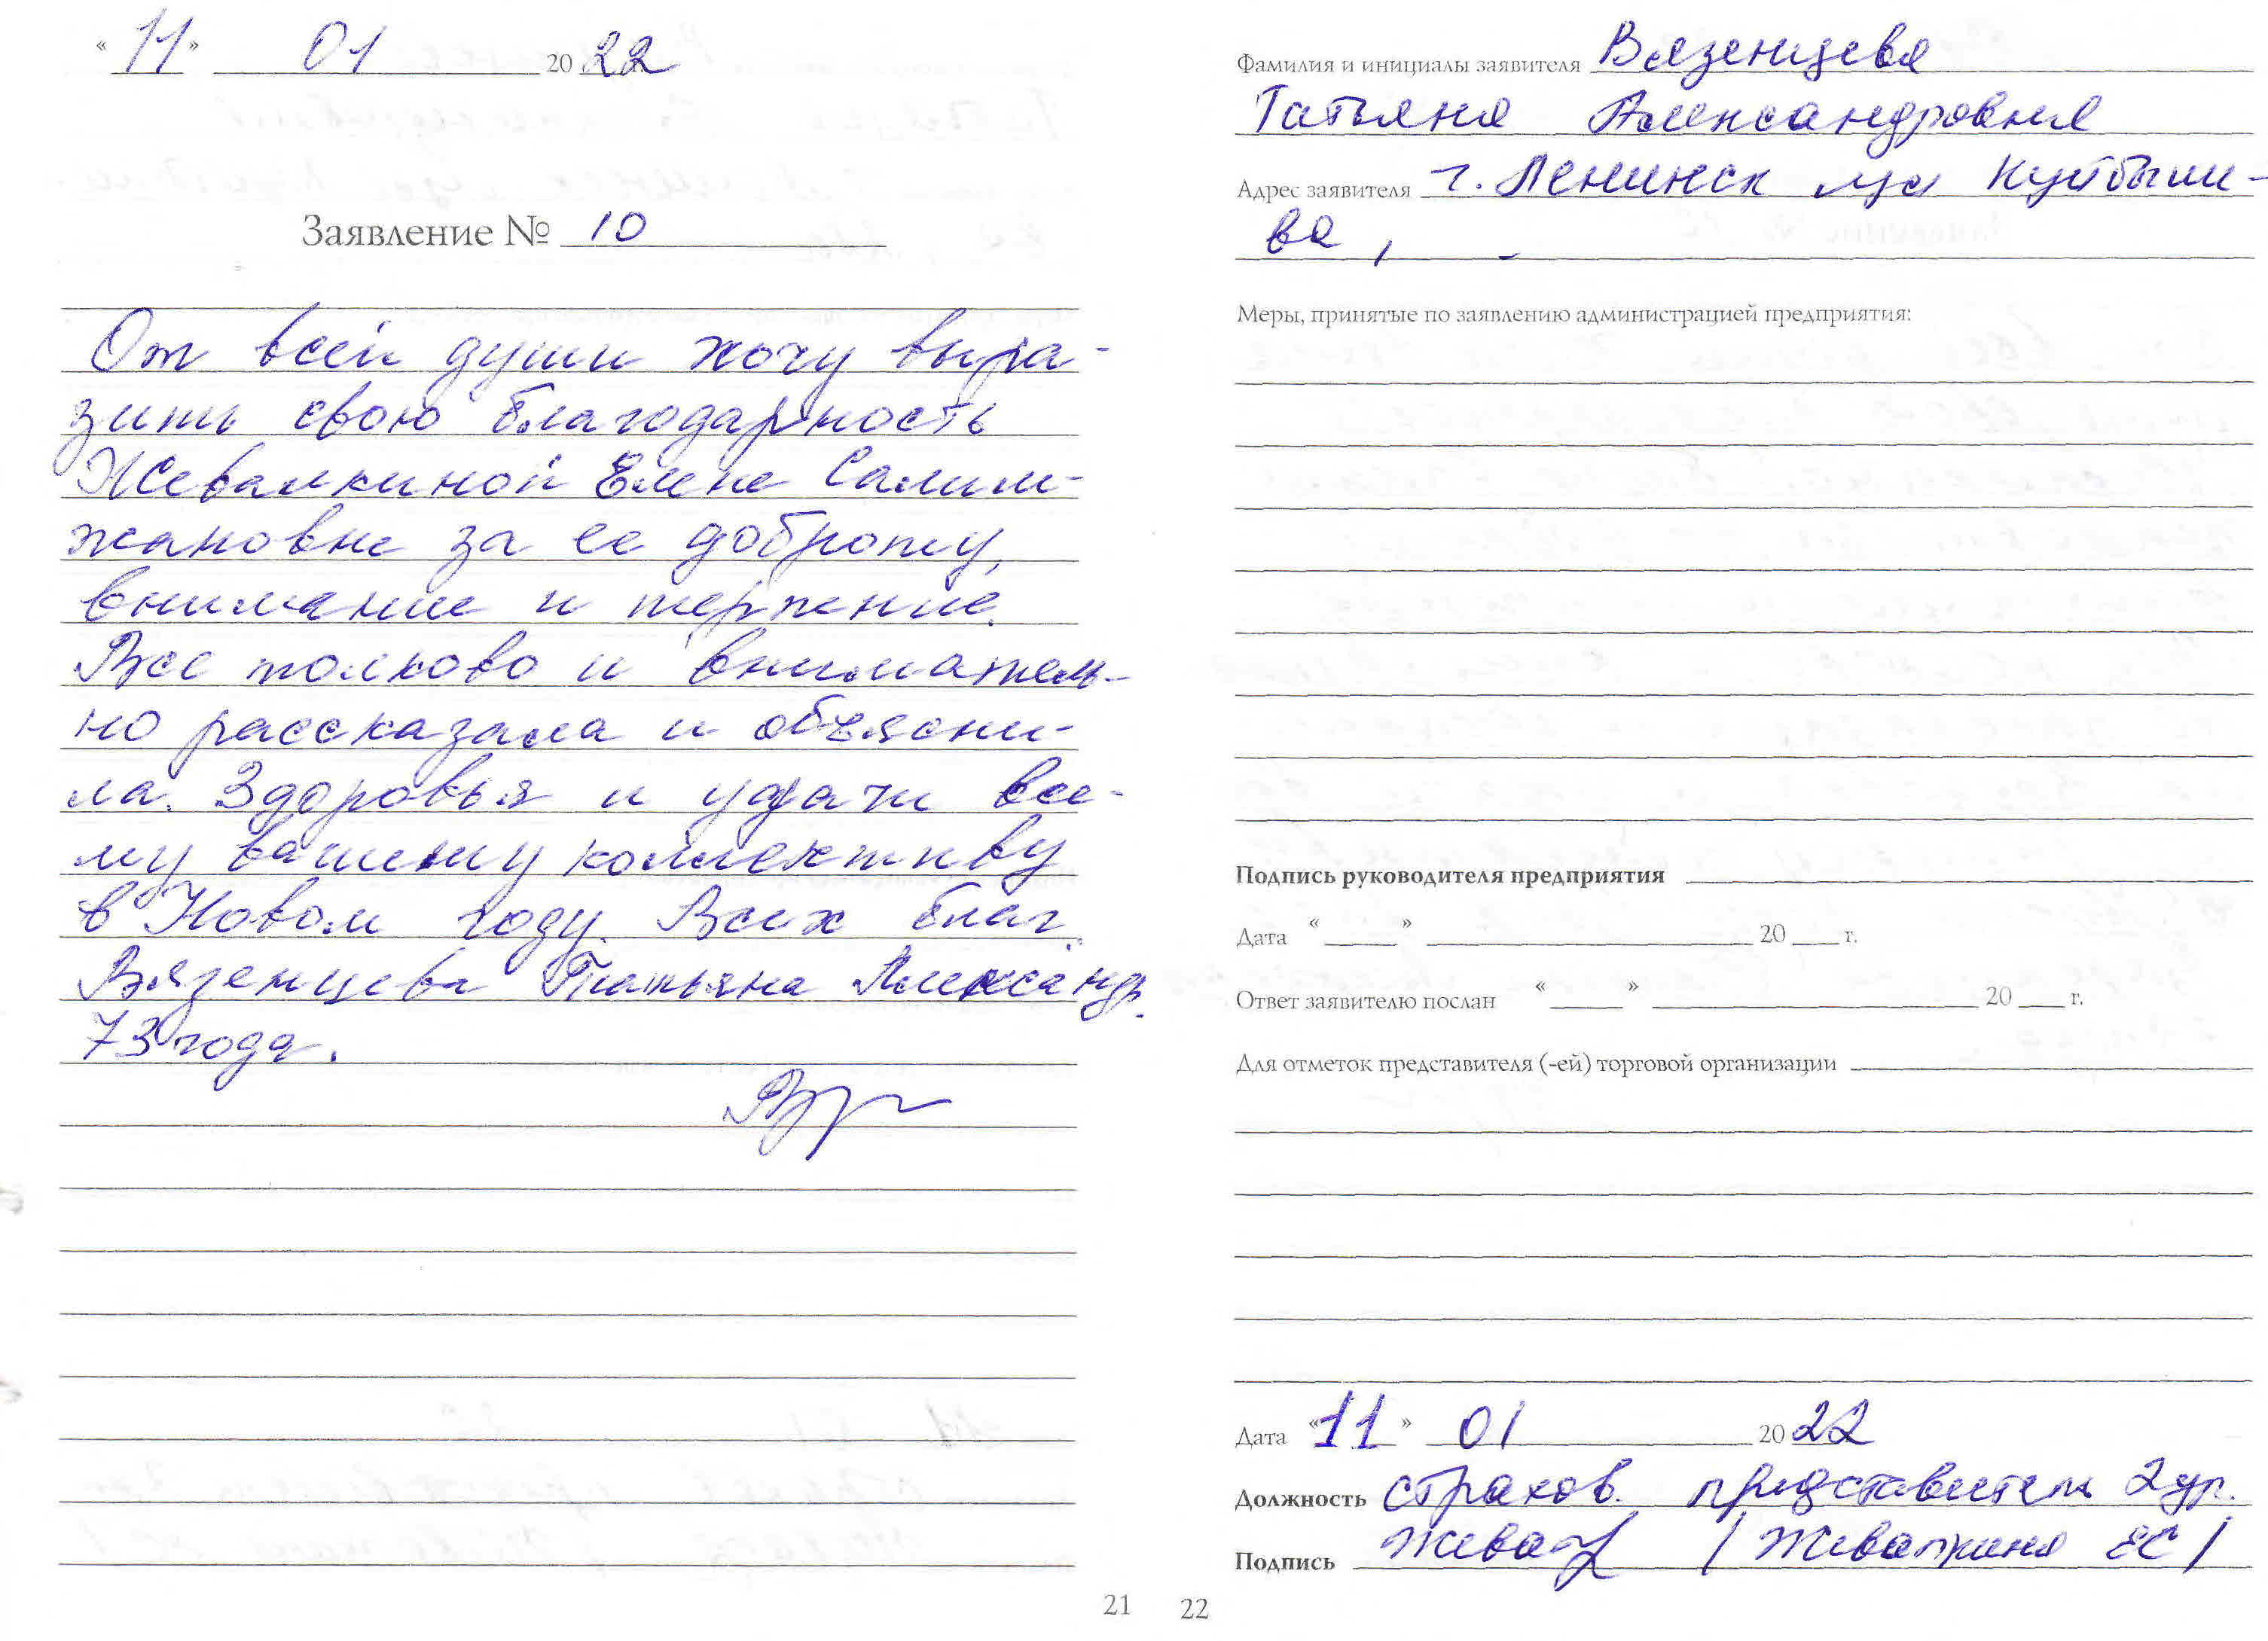 « 11 » 01 20 22
Заявление № 10
От всей души хочу выра-
зить свою благодарность
Жевалкиной Елене Салим-
жановне за ее доброту,
внимание и терпение.
Все толково и вниматель-
но рассказала и объясни-
ла. Здоровья и удачи все-
му вашему коллективу
в Новом году. Всех благ.
Вяземцева Татьяна Александр.
73 года.
21
Фамилия и инициалы заявителя Вяземцева
Татьяна Александровна
Адрес заявителя г. Ленинск ул Куйбыше-
ва ,
Меры, принятые по заявлению администрацией предприятия:
Подпись руководителя предприятия
Дата « » 20 г.
Ответ заявителю послан « » 20 г.
Для отметок представителя (-ей) торговой организации
Дата « 11 » 01 20 22
Должность страхов. представитель 2 ур.
Подпись / Жевалкина ЕС /
22